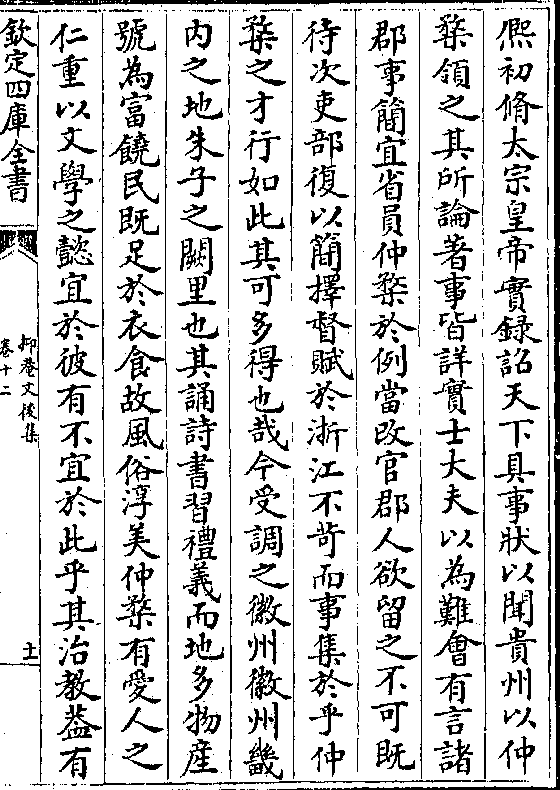 熈初脩太宗皇帝實録詔天下具事狀以聞貴州以仲
棨領之其所論著事皆詳實士大夫以為難㑹有言諸
郡事簡宜省員仲棨於例當改官郡人欲留之不可既
待次吏部復以簡擇督賦於浙江不苛而事集於乎仲
棨之才行如此其可多得也哉今受調之徽州徽州畿
内之地朱子之闕里也其誦詩書習禮義而地多物産
號為富饒民既足於衣食故風俗淳美仲棨有愛人之
仁重以文學之懿宜於彼有不宜於此乎其治教葢有
欽定四庫全書
抑菴文後集
卷十二
十一